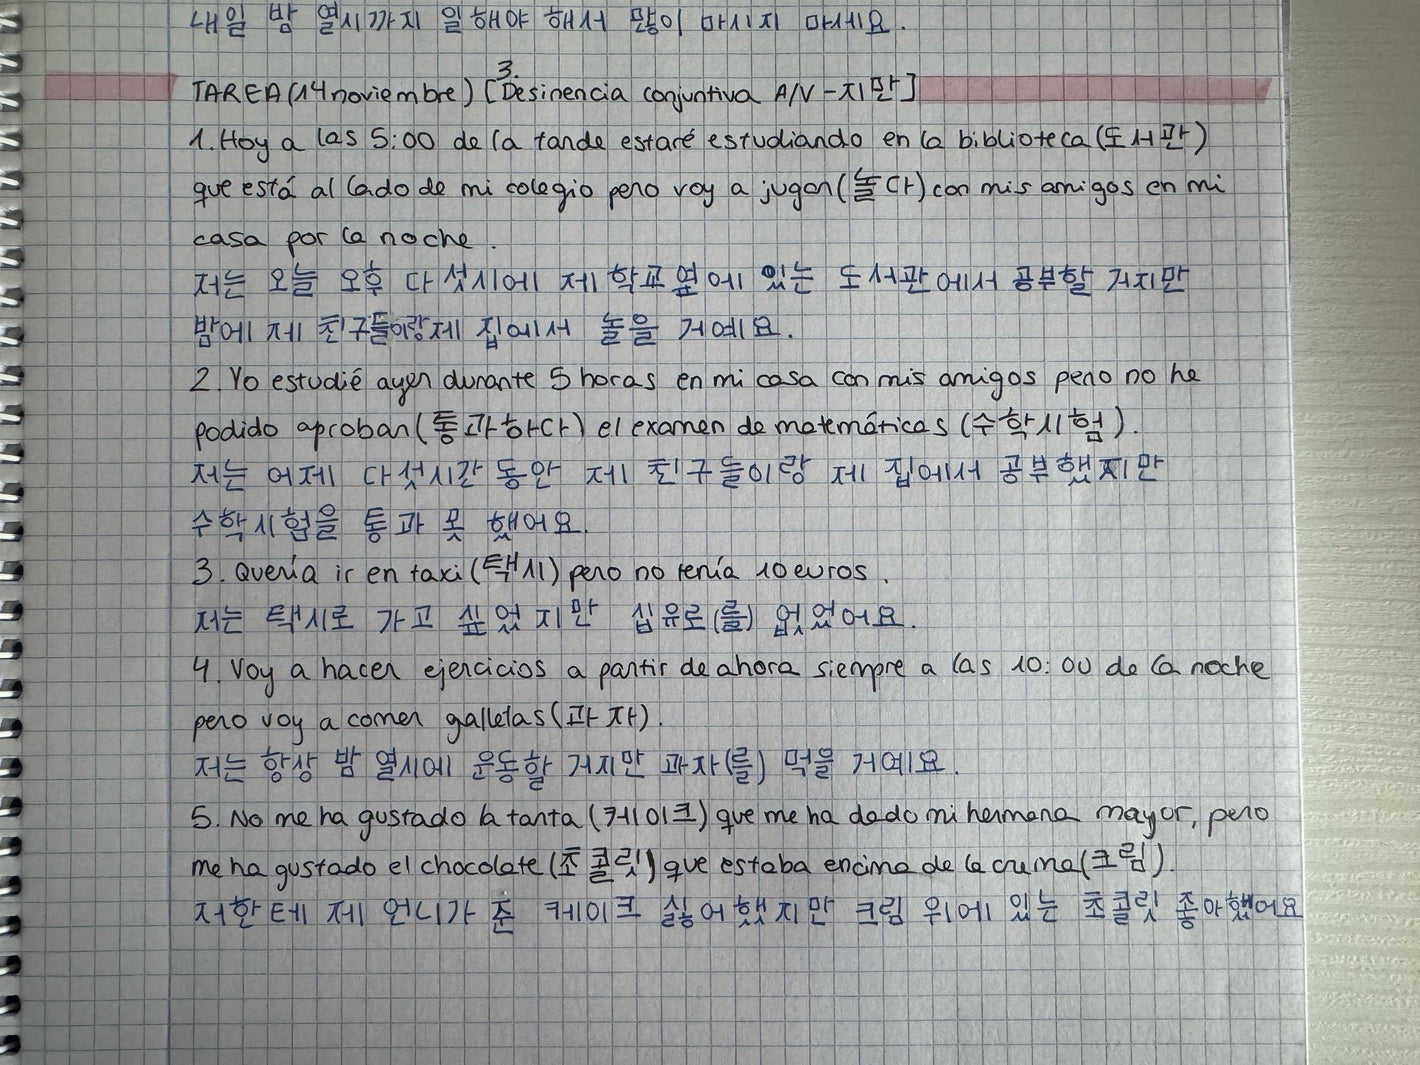 내일 밤 열시까지 일해야 해서 많이 마시지 마세요.
3.
TAREA (14 noviembre) [Desinencia conjuntiva A/V -지만]
1. Hoy a las 5:00 de la tarde estaré estudiando en la biblioteca (도서관)
que está al lado de mi colegio pero voy a jugar (놀다) con mis amigos en mi
casa por la noche.
저는 오늘 오후 다섯시에 제 학교 옆에 있는 도서관에서 공부할 거지만
밤에 제 친구들이랑 제 집에서 놀을 거예요.
2. Yo estudié ayer durante 5 horas en mi casa con mis amigos pero no he
podido aprobar (통과하다) el examen de matemáticas (수학시험).
저는 어제 다섯시간 동안 제 친구들이랑 제 집에서 공부했지만
수학시험을 통과 못 했어요.
3. Quería ir en taxi (택시) pero no tenía 10 euros.
저는 택시로 가고 싶었지만 십유로(를) 없었어요.
4. Voy a hacer ejercicios a partir de ahora siempre a las 10:00 de la noche
pero voy a comer galletas (과자).
저는 항상 밤 열시에 운동할 거지만 과자(를) 먹을 거예요.
5. No me ha gustado la tarta (케이크) que me ha dado mi hermana mayor, pero
me ha gustado el chocolate (초콜릿) que estaba encima de la crema (크림).
저한테 제 언니가 준 케이크 싫어했지만 크림 위에 있는 초콜릿 좋아했어요